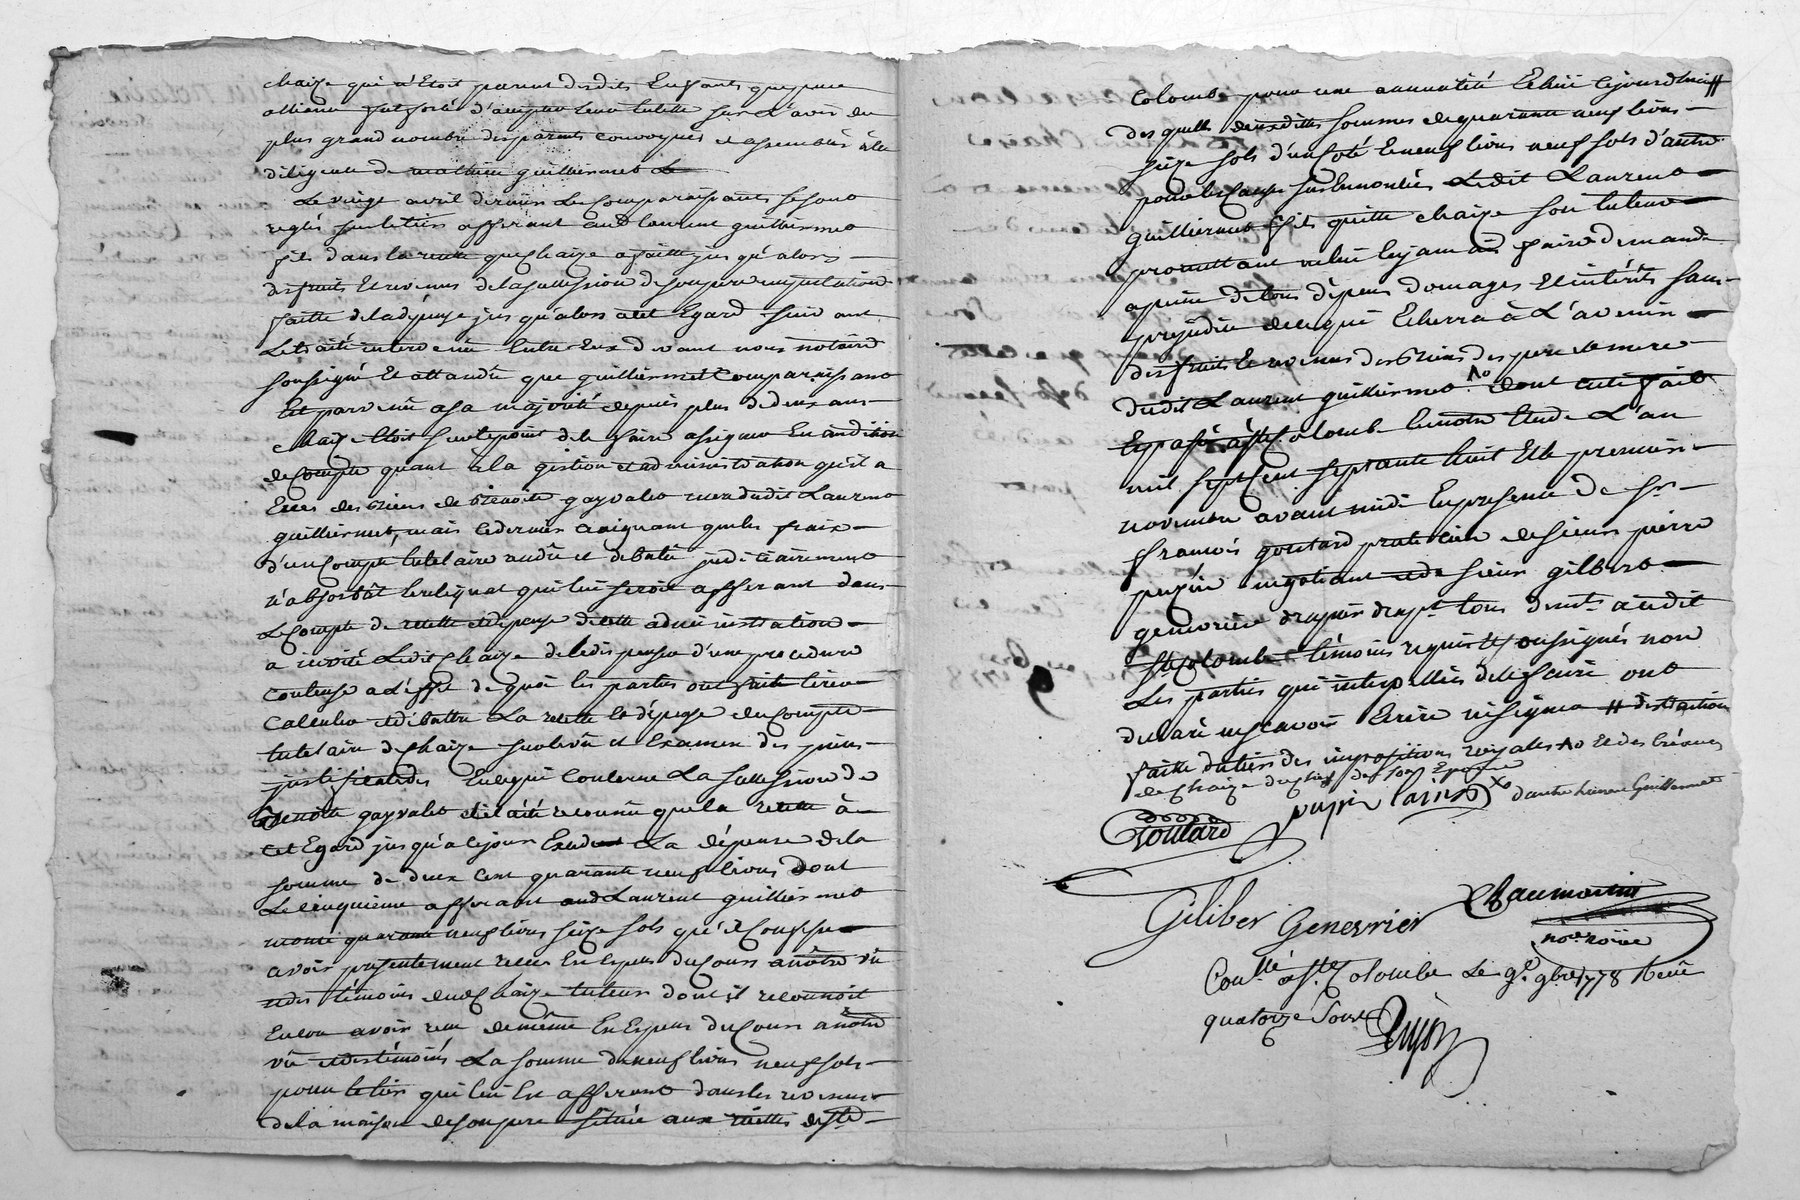 chaize qui n'étoit parent desdits Enfants que par
alliance fut forcé d'accepter leur tutelle sur L'avis du
plus grand nombre des parents convoqués et assemblés à la
diligence de mathieu guilliermet
Le vingt avril dernier Les Comparaissants se sont
reglés sur le tiers afferant aud. laurent guilliermet
fils dans la recette que Chaize a faitte jusqu'alors
des fruits Et revenus de la succession de son pere
faitte de la dépense jusqu'alors a cet Egard suivant
Le traité intervenu Entre Eux devant nous notaire
soussigné Et attandu que guilliermet Comparaissant
Est parvenu a sa majorité depuis plus de deux ans
chaize étoit sur le point de le faire assigner En audition
de Compte quant à la gestion et administration qu'il a
Eues des Biens de Benoite gayvalet mere dudit Laurent
guilliermet, mais ce dernier craignant que les fraix
d'un Compte tutelaire rendu et debatu judiciairement
n'absorbât le reliquat qui lui seroit afferant dans
Le Compte de recette et depense de cette administration
a invité Ledit Chaize de le dispenser d'une procedure
couteuse a L'effet de quoi les parties ont fait
Calculer et debattre La recette et dépense du Compte
tutelaire de chaize sur le vu et Examen des pieces
justificatives En ce qui Concerne La succession de
Benoite gayvalet et il a été reconnu que la recette à
cet Egard jusqu'a ce jour Excede La dépense de la
somme de deux Cent quarante neuf livres Dont
Le cinquieme afferant aud Laurent guilliermet
monte quarante neuf livres seize sols qu'il Confesse
avoir présentement reçu En Especes du Cours a notre vû
et des témoins dud Chaize tuteur dont il reconnoit
Encore avoir reçu de même En Especes du Cours a notre
vû et des témoins La somme de neuf livres neuf sols
pour le tiers qui lui Est afferant dans les revenus
de la maison de son pere située aux de Ste
Colombe pour une annuitté Echüe cejourd'hui #
des quelles deux dittes sommes de quarante neuf livres
seize sols d'un coté Et neuf livres neuf sols d'autre
pour les causes sus Enoncées Ledit Laurent
guilliermet fils quitte chaize son tuteur
promettant ne lui en jamais faire demande
a peine de tous dépens domages Et interêts sans
prejudice de ce qui Echerra à L'avenir
des fruits Et revenus des Biens des pere et mere
dudit Laurent guilliermet dont acte fait
Et passé à Ste Colombe En notre Etude L'an
mil sept Cent septante huit Et le premier
novembre avant midi En presence de Sr
francois goutard praticien de sieur pierre
pupin negotiant et de sieur gilbert
genevrier drapier drapt. tous demts. audit
Ste Colombe témoins requis Et soussignés non
Les parties qui interpellées de le faire ont
declaré ne sçavoir Ecrire ni signer # distraction
faitte du tiers des impositions royalles et des
de Chaize
d'autre Laurent Guilliermet
Goutard
pupin
Giliber Genevrier
Chaumartin
nore. roïal
Conllé à Ste Colombe Le 9e. 9bre 1778 Reçu
quatorze sous
Dujon